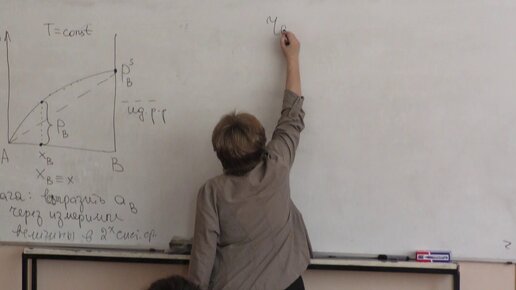 T = const
P_B^S
P_B
ид. р-р
A x_B B
x_B ≡ x
выразить a_B
через измерим
величины в 2^х сист. ср.
η_B